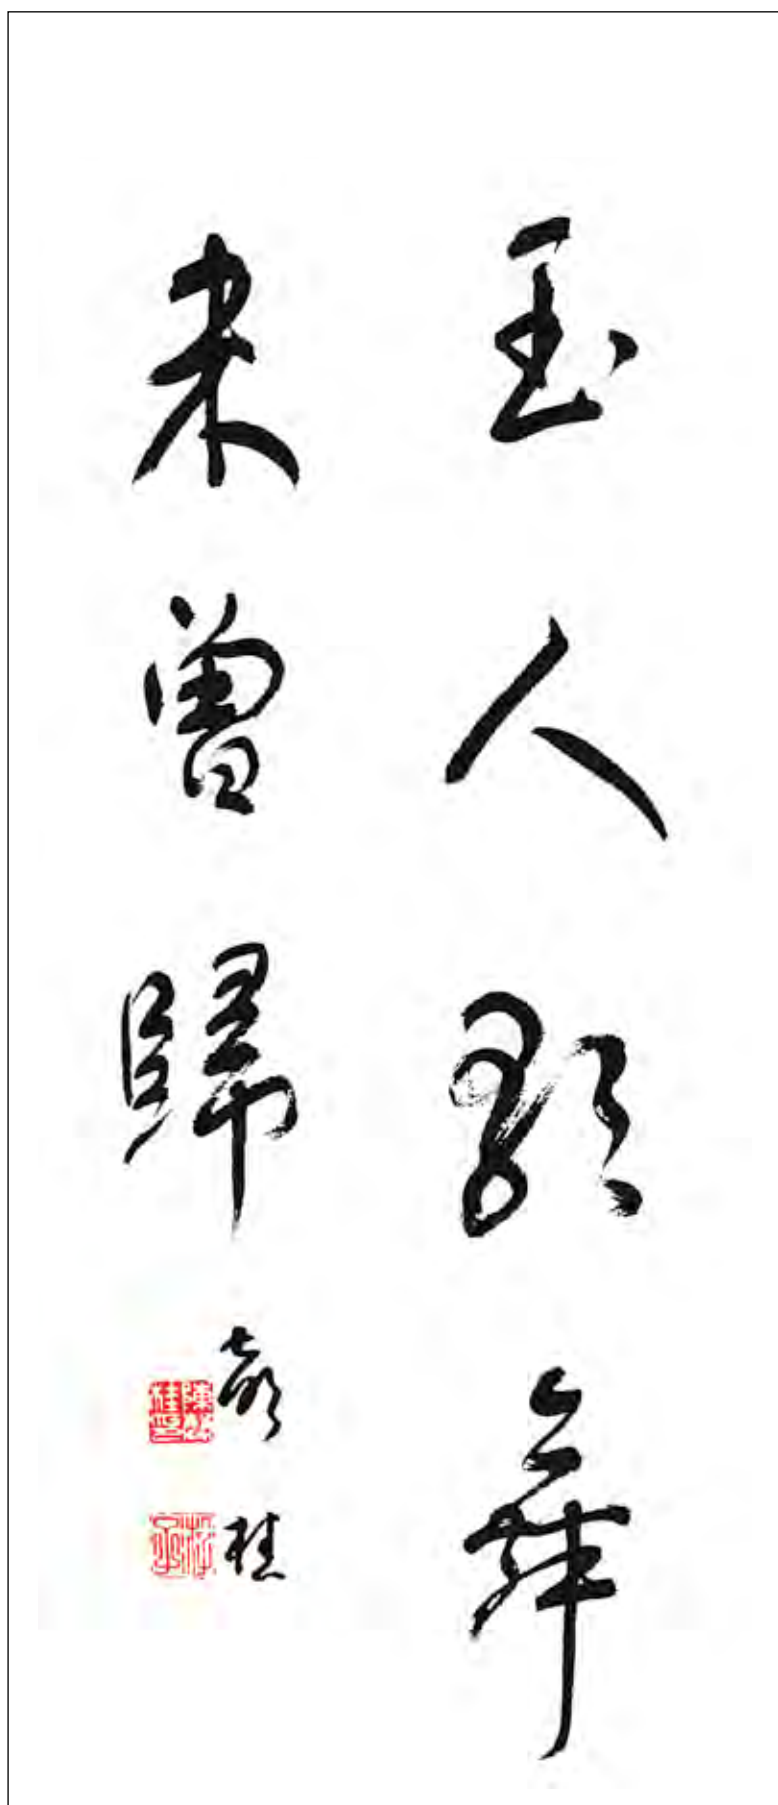 玉人歌舞
未曾歸
桂